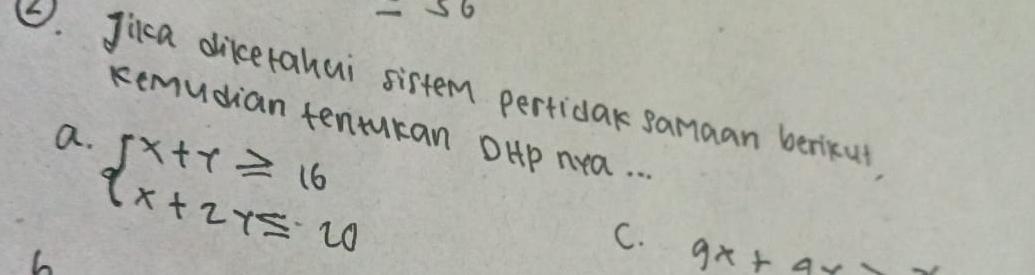 = 56
2. Jika diketahui sistem pertidak samaan berikut,
Kemudian tentukan DHP nya ...
a. { x + y ≥ 16
x + 2y ≤ 20
b
c. 9x +